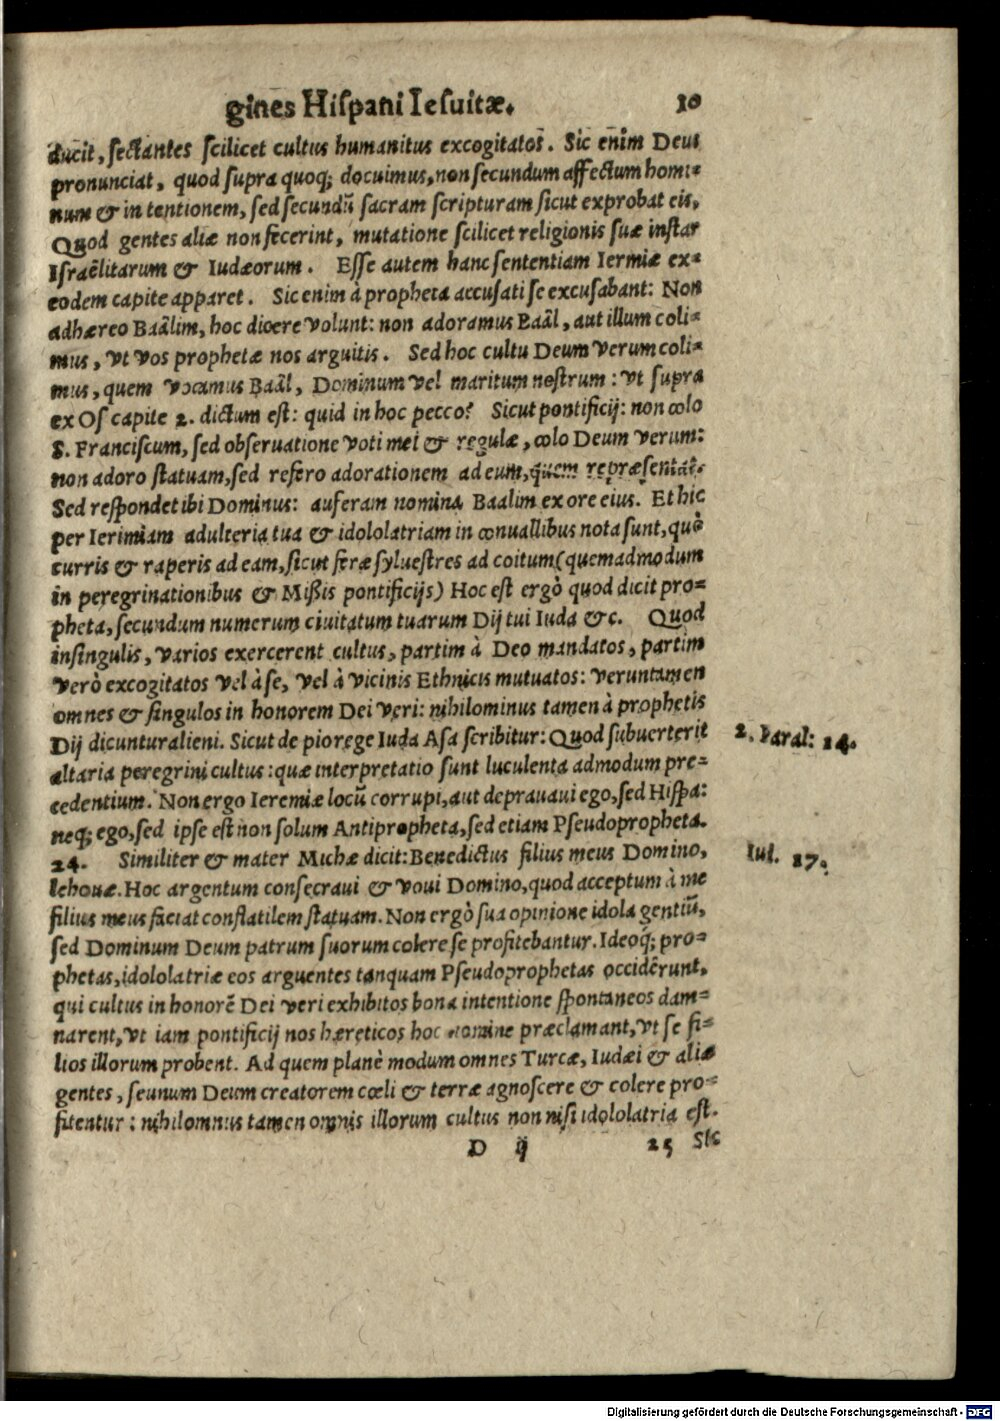 gines Hiſpani Ieſuitæ. 10
ducit, ſectantes ſcilicet cultus humanitus excogitatos. Sic enim Deus
pronunciat, quod ſupra quoq; docuimus, non ſecundum affectum homi-
num & intentionem, ſed ſecundũ ſacram ſcripturam ſicut exprobat eis,
Quod gentes aliæ non fecerint, mutatione ſcilicet religionis ſuæ inſtar
Iſraëlitarum & Iudæorum. Eſſe autem hanc ſententiam Iermiæ ex-
eodem capite apparet. Sic enim à propheta accuſati ſe excuſabant: Non
adhæreo Baâlim, hoc dicere volunt: non adoramus Baâl, aut illum coli-
mus, vt vos prophetæ nos arguitis. Sed hoc cultu Deum verum coli-
mus, quem vocamus Baâl, Dominum vel maritum noſtrum: vt ſupra
ex Oſ capite 2. dictum eſt: quid in hoc pecco? Sicut pontificij: non colo
S. Franciſcum, ſed obſeruatione voti mei & regulæ, colo Deum verum:
non adoro ſtatuam, ſed refero adorationem ad eum, quem repræſentat.
Sed reſpondet ibi Dominus: auferam nomina Baalim ex ore eius. Et hic
per Ierimiam adulteria tua & idololatriam in conuallibus nota ſunt, quò
curris & raperis ad eam, ſicut feræ ſylueſtres ad coitum (quemadmodum
in peregrinationibus & Miſsis pontificijs) Hoc eſt ergò quod dicit pro-
pheta, ſecundum numerum ciuitatum tuarum Dij tui Iuda &c. Quod
in ſingulis, varios exercerent cultus, partim à Deo mandatos, partim
verò excogitatos vel à ſe, vel à vicinis Ethnicis mutuatos: veruntamen
omnes & ſingulos in honorem Dei veri: nihilominus tamen à prophetis
Dij dicuntur alieni. Sicut de pio rege Iuda Aſa ſcribitur: Quod ſubuerterit
altaria peregrini cultus: quæ interpretatio ſunt luculenta admodum præ-
cedentium. Non ergo Ieremiæ locũ corrupi, aut deprauaui ego, ſed Hiſpa:
neq; ego, ſed ipſe eſt non ſolum Antipropheta, ſed etiam Pſeudopropheta.
2. Paral: 14.
24. Similiter & mater Michæ dicit: Benedictus filius meus Domino,
Iehouæ. Hoc argentum conſecraui & voui Domino, quod acceptum à me
filius meus faciat conflatilem ſtatuam. Non ergò ſua opinione idola gentiũ,
ſed Dominum Deum patrum ſuorum colere ſe profitebantur. Ideoq; pro-
phetas, idololatriæ eos arguentes tanquam Pſeudoprophetas occidêrunt,
qui cultus in honorẽ Dei veri exhibitos bona intentione ſpontaneos dam-
narent, vt iam pontificij nos hæreticos hoc nomine præclamant, vt ſe fi-
lios illorum probent. Ad quem planè modum omnes Turcæ, Iudæi & aliæ
gentes, ſe unum Deum creatorem cœli & terræ agnoſcere & colere pro-
fitentur: nihilomnus tamen omnis illorum cultus non niſi idololatria eſt.
Iud. 17.
D ij 25 Sic
Digitalisierung gefördert durch die Deutsche Forschungsgemeinschaft - DFG